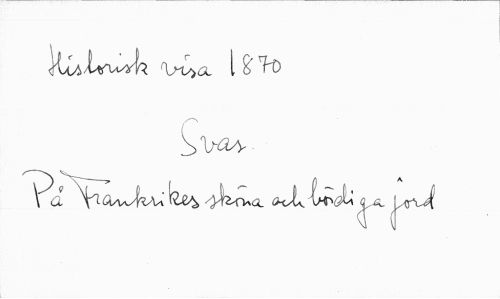 Historisk visa 1870
Svar.
På Frankrikes sköna och bördiga jord